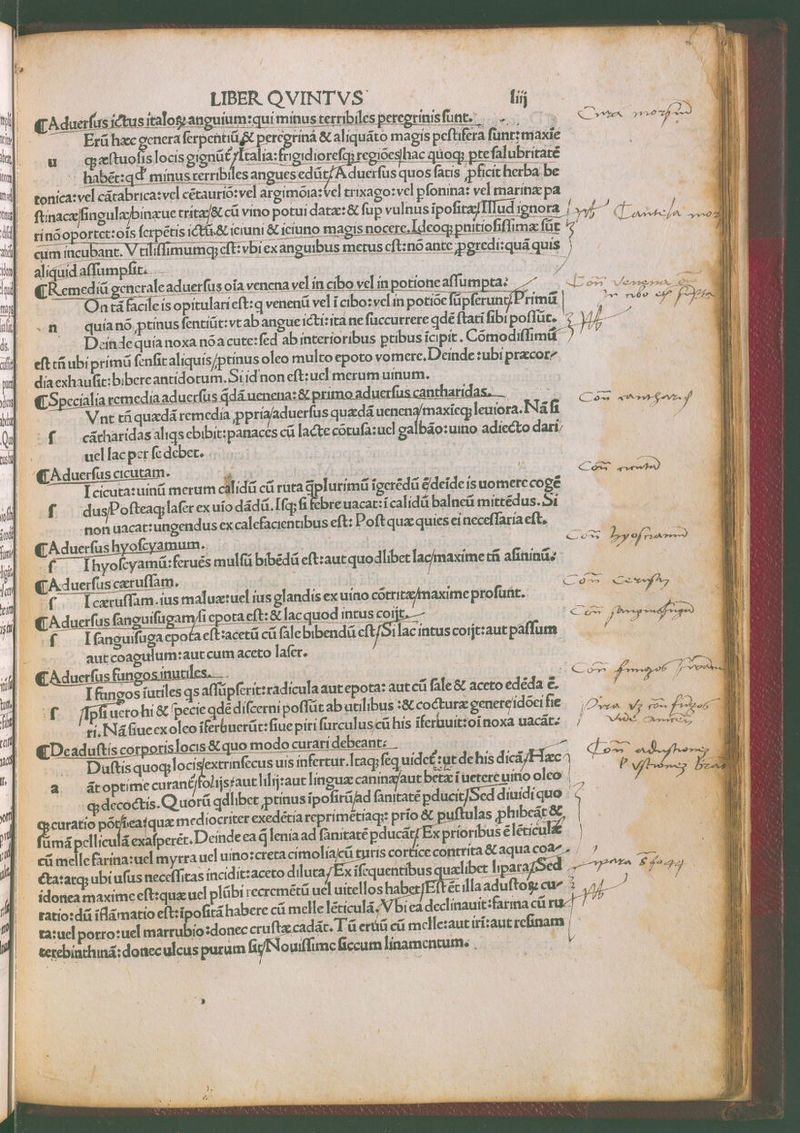 LIBER QVINTVS liij
❡Aduersus ictus italoꝝ anguium:qui minus terribiles peregrinis sunt.
Erū hæc genera serpentiū,& peregrina & aliquāto magis pestifera sunt:maxīe
u qꝫ æstuosis locis gignūt/Italia:frigidioresqꝫ regiōes|hac quoqꝫ pte salubritatē
habēt:qđ minus terribiles angues edūt/Aduersus quos satis ꝓficit herba be
tonica:vel cātabrica:vel cētaurio:vel argimōia:vel trixago:vel psonina: vel marinæ pa
stinacæ/singulæ/binæue tritæ/& cū vino potui datæ:& sup vulnus īpositæ/Illud ignora
ri nō oportet:oīs serpētis ictū,& ieiuni & ieiuno magis nocere.Ideoqꝫ pnitiosissimæ sūt
cum incubant. Vtilissimumqꝫ est:vbi ex anguibus metus est:nō ante ꝓgredi:quā quis
aliquid assumpsit.
❡Remediū generale aduersus oīa venena vel in cibo vel in potione assumpta:
On tā facile is opitulari est:q venenū vel ī cibo:vel in potiōe sūpserunt/Primū
n quia nō ꝓtinus sentiūt:vt ab angue icti:ita ne succurrere qdē stati sibi possūt.
Deinde quia noxa nō a cute:sed ab interioribus ptibus īcipit. Cōmodissimū
est tñ ubi primū sensit aliquis/ptinus oleo multo epoto vomere. Deinde:ubi præcor-
dia exhausit:bibere antidotum. Si id non est:uel merum uinum.
❡Specialia remedia aduersus qdā uenena:& primo aduersus cantharidas.
Vnt tñ quædā remedia ꝓpria/aduersus quædā uenena/maxieqꝫ leuiora. Nā si
f cātharidas aliqs ebibit:panaces cū lacte cōtusa:uel galbāo:uino adiecto dari
uel lac per se debet.
❡Aduersus cicutam.
I cicuta:uinū merum cālidū cū ruta q̄plurimū īgerēdū é/deīde is uomere cogē
f dus/Posteaqꝫ laser ex uīo dādū. Isqꝫ si febre uacat:ī calidū balneū mittēdus. Si
non uacat:ungendus ex calefacientibus est: Post quæ quies ei necessaria est.
❡Aduersus hyoscyamum.
f I hyoscyamū:feruēs mulsū bibēdū est:aut quodlibet lac/maxime tñ asininū:
❡Aduersus cærussam.
f I cærussam. ius maluæ:uel ius glandis ex uino cōtritæ/maxime prosunt.
❡Aduersus sanguisugam/si epota est:& lac quod intus coijt.
f I sanguisuga epota est:acetū cū sale bibendū est/Si lac intus coijt:aut passum
aut coagulum:aut cum aceto laser.
❡Aduersus fungos inutiles.
I fungos īutiles qs assūpserit:radicula aut epota: aut cū sale & aceto edēda ē.
f /Ipsi uero hi & specie qdē discerni possūt ab utilibus :& cocturæ genere idōei fie
ri. Nā siue ex oleo īferbuerūt:siue piri surculus cū his īferbuit:oī noxa uacāt:
❡De adustis corporis locis & quo modo curari debeant:
Dustis quoqꝫ locis/extrinsecus uis infertur. Itaqꝫ seq̄ uidet̄:ut de his dicā/Hæc
a āt optime curant̄/folijs:aut lilij:aut linguæ caninæ/aut betæ ī uetere uino oleo
qꝫ decoctis. Quorū qdlibet ꝓtinus īpositū/ad sanitatē pducit/Sed diuidi quo
qꝫ curatio pōt/ī ea/quæ mediocriter exedētia reprimētiaqꝫ: prīo & pustulas phibeāt &
sūmā pelliculā exasperēt. Deinde ea q̄ lenia ad sanitatē pducāt/ Ex prioribus ē lēticulæ
cū melle farina:uel myrra uel uino:creta cimolia/cū turis cortice contrita & aqua coa-
cta:atqꝫ ubi usus necessitas incidit:aceto diluta/Ex īsequentibus quælibet lipara/Sed
idonea maxime est:quæ uel plūbi recremētū uel uitellos habet/Est ēt illa adustoꝝ cu-
ratio:dū īflāmatio est:īpositā habere cū melle lēticulā/Vbi ea declinauit:farina cū ru-
ta:uel porro:uel marrubio:donec crustæ cadāt. Tū eruū cū melle:aut iri:aut resinam
terebinthinā:donec ulcus purum sit/Nouissime siccum linamentum.
Cautela
Con̄ cicuta
Con̄ hyosciamū
Con̄ Cerusā
Con̄ sanguisugā